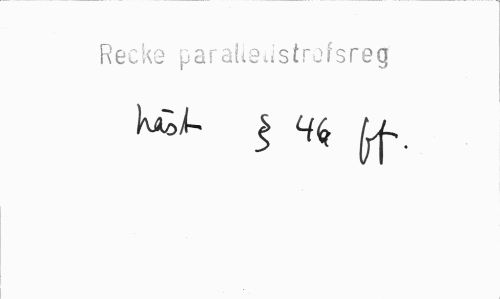 Recke parallellstrofsreg
häst § 46 ff.